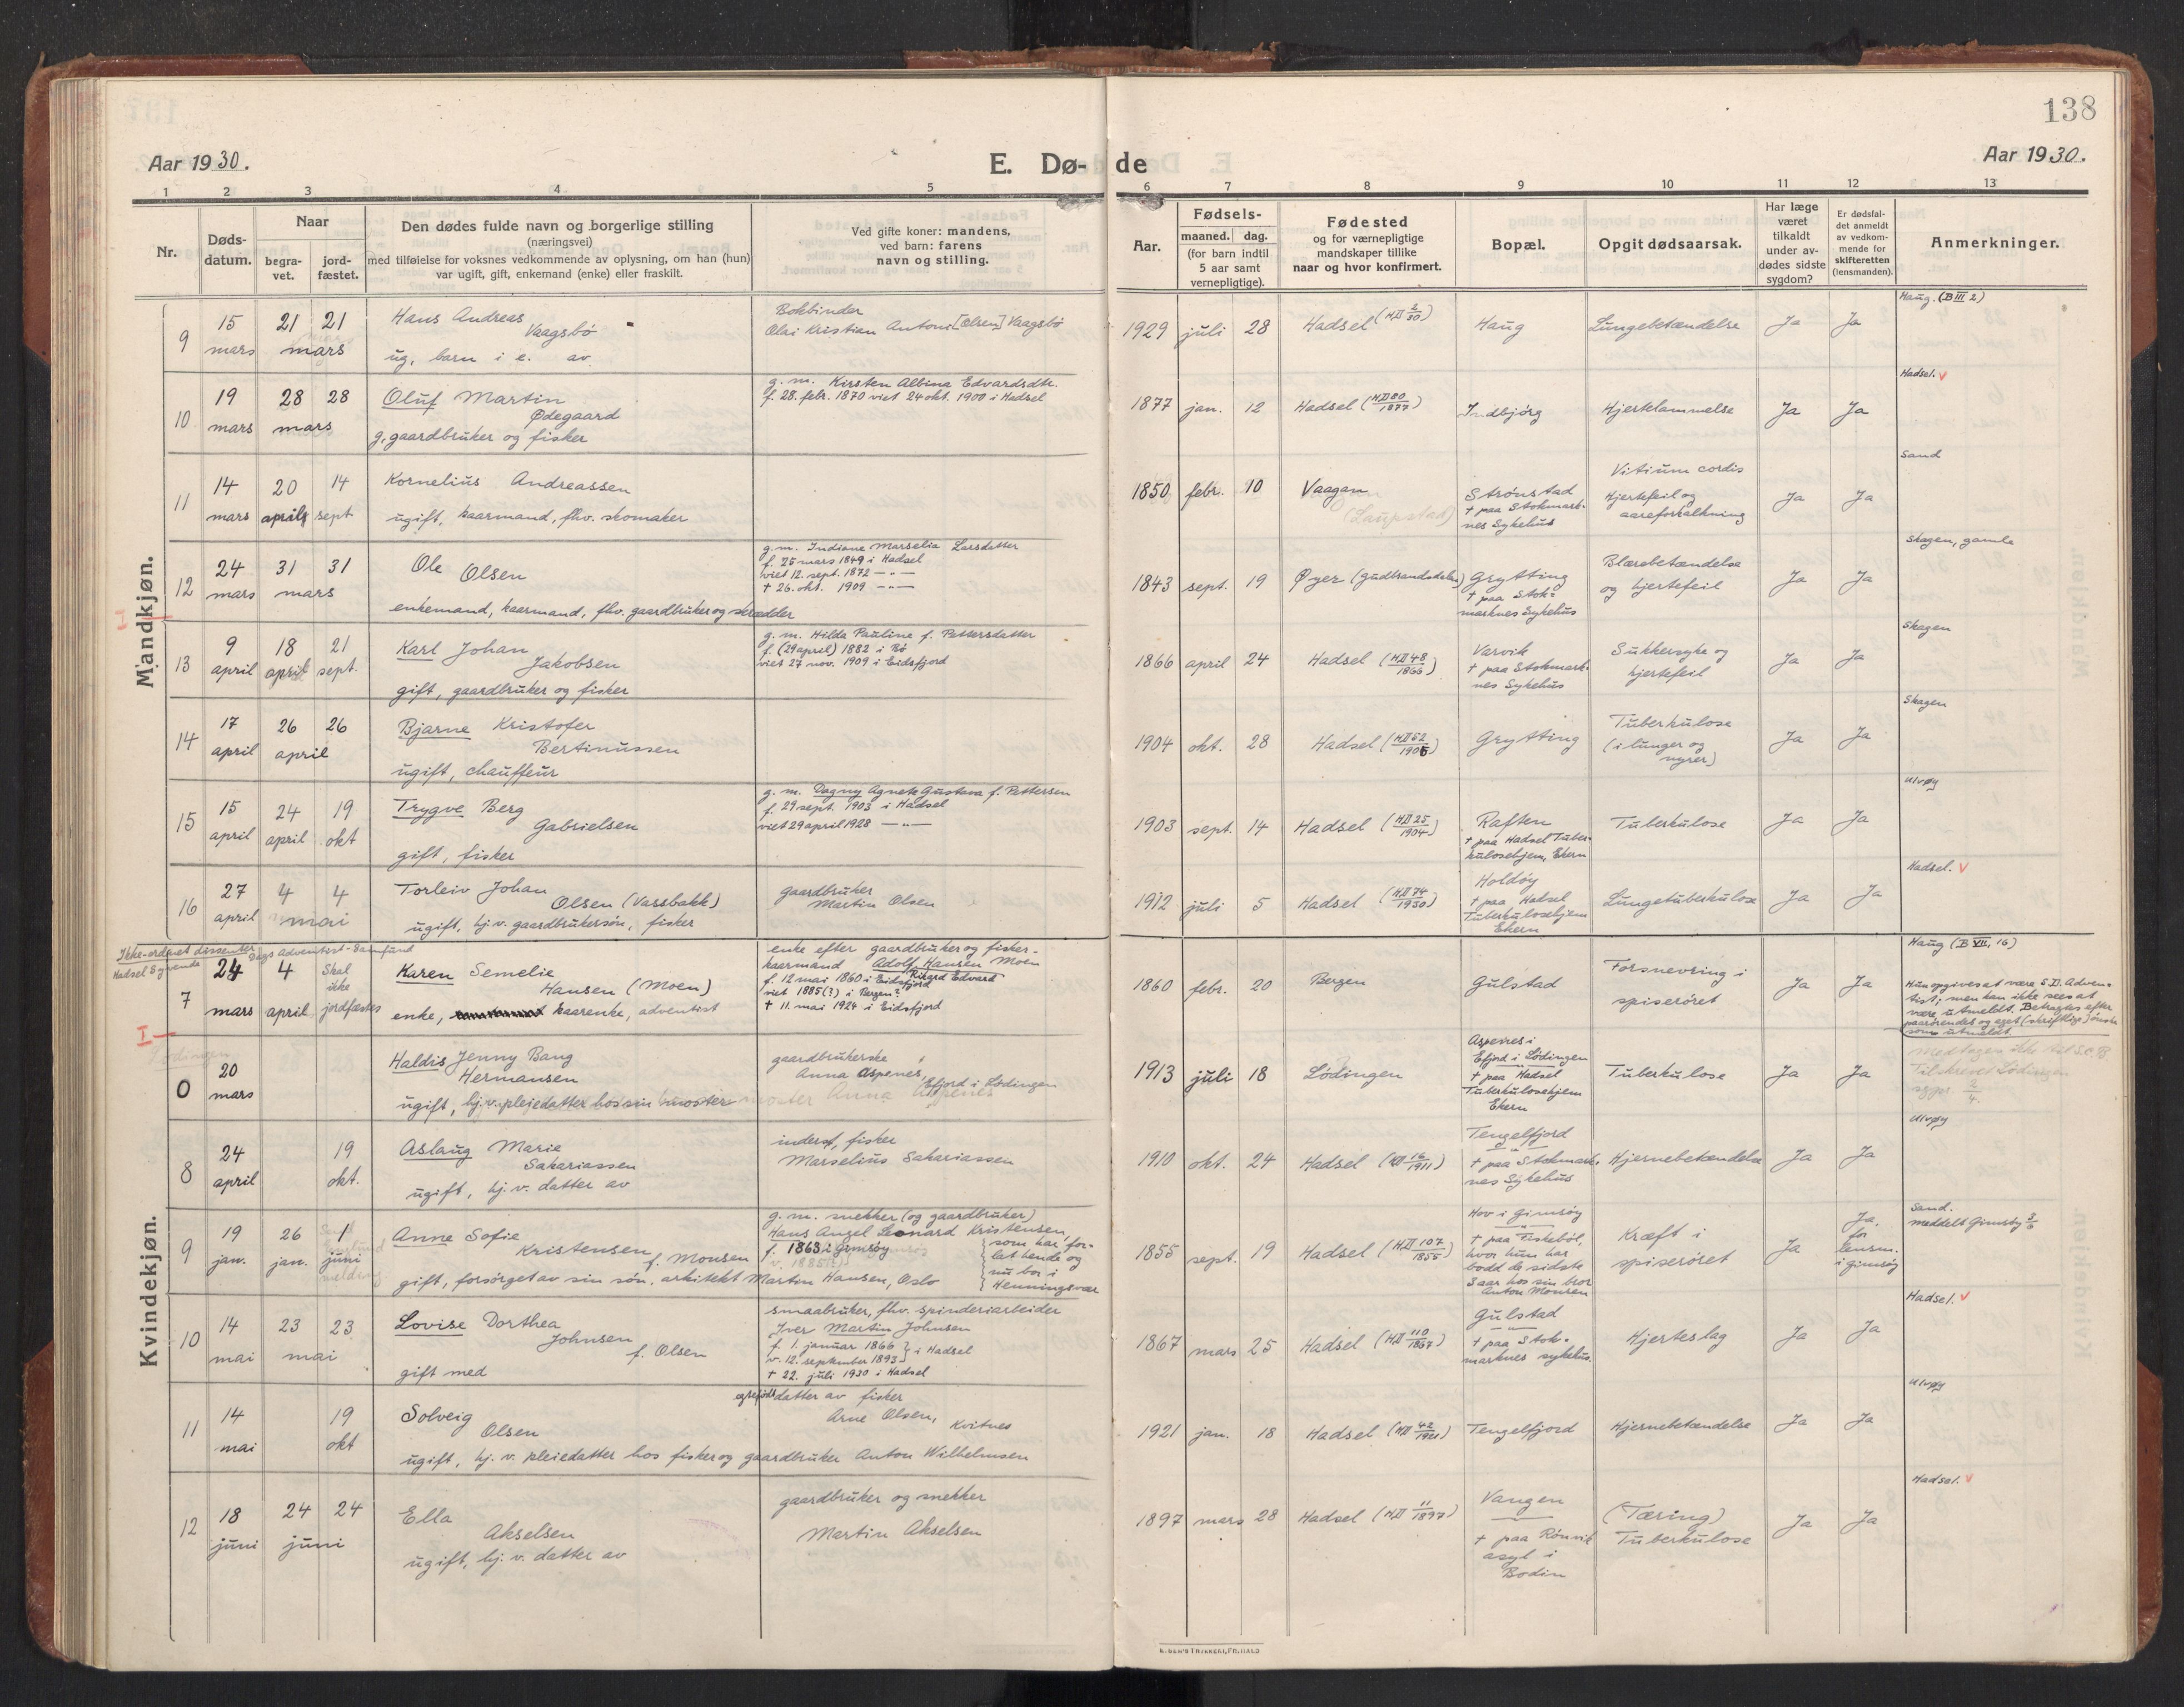 138
Aar 1930.
E. Dø- de
Aar 1930.
1 2 3 4 5 6 7 8 9 10 11 12 13
Nr.
Døds-
datum.
Naar
begra-
vet.
jord-
fæstet.
Den dødes fulde navn og borgerlige stilling
(næringsvei)
med tilføielse for voksnes vedkommende av oplysning, om han (hun)
var ugift, gift, enkemand (enke) eller fraskilt.
Ved gifte koner: mandens,
ved barn: farens
navn og stilling.
Aar.
Fødsels-
maaned. dag.
(for barn indtil
5 aar samt
vernepligtige).
Fødested
og for værnepligtige
mandskaper tillike
naar og hvor konfirmert.
Bopæl.
Opgit dødsaarsak.
Har læge
været
tilkaldt
under av-
dødes sidste
sygdom?
Er dødsfal-
det anmeldt
av vedkom-
mende for
skifteretten
(lensmanden).
Anmerkninger.
Mandkjøn.
9
15
mars
21 21
mars
Hans Andreas
Vaagsbø
ug. barn i e. av
Bokbinder
Olai Kristian Antoni [Olsen] Vaagsbø
1929 juli 28
Hadsel (MII 2/30)
Haug
Lungebetændelse
Ja
Ja
Haug. (B III 2)
10
19
mars
28 28
mars
Oluf Martin
Ødegaard
g. gaardbruker og fisker
g. m. Kirsten Albina Edvardsdtr.
f. 28. febr. 1870 viet 24 okt. 1900 i Hadsel
1877 jan. 12
Hadsel (MII 80/1877)
Indbjørg
Hjertelammelse
Ja
Ja
Hadsel. v
11
14
mars
20
april
14
sept
Kornelius Andreassen
ugift, kaarmand, fhv. skomaker
1850 febr. 10
Vaagan
(Laupstad)
Strønstad
† paa Stokmark-
nes Sykehus
Vitium cordis
Hjertefeil og
aareforkalkning
Ja
Ja
Sand
12
24
mars
31 31
mars
Ole
Olsen
enkemand, kaarmand, fhv. gaardbruker og skrædder
g. m. Indiane Marselia Larsdatter
f. 25 mars 1849 i Hadsel
viet 12. sept. 1872 —„—
† 26. okt. 1909 —„—
1843 sept. 19
Øyer (Gudbrandsdalen)
Grytting
† paa Stok-
marknes Sykehus
Blærebetændelse
og hjertefeil
Ja
Ja
Skagen, gamle
I
13
9
april
18
april
21
sept.
Karl Johan
Jakobsen
gift, gaardbruker og fisker
g. m. Hilda Pauline f. Pettersdatter
f. (29 april) 1882 i Bø
viet 27 nov. 1909 i Eidsfjord
1866 april 24
Hadsel (MII 48/1866)
Varvik
† paa Stokmark-
nes Sykehus
Sukkersyke og
hjertefeil
Ja
Ja
Skagen
14
17
april
26 26
april
Bjarne Kristofer
Bertinussen
ugift, chauffeur
1904 okt. 28
Hadsel (MII 52/1905)
Grytting
Tuberkulose
(i lunger og
nyrer)
Ja
Ja
Skagen
15
15
april
24
april
19
okt
Trygve Berg
Gabrielsen
gift, fisker
g. m. Dagny Agnete Gustava f. Pettersen
f. 29 sept. 1903 i Hadsel
viet 29 april 1928 —„—
1903 sept. 14
Hadsel (MII 25/1904)
Raften
† paa Hadsel Tuber-
kulosehjem, Ekern
Tuberkulose
Ja
Ja
Ulvøy
16
27
april
4 4
mai
Torleiv Johan
Olsen (Vassbakk)
ugift, hj.v. gaardbrukersøn, fisker
gaardbruker
Martin Olsen
1912 juli 5
Hadsel (MII 74/1930)
Holdøy
† paa Hadsel
Tuberkulosehjem
Ekern
Lungetuberkulose
Ja
Ja
Hadsel. v
Kvindekjøn.
Ikke-ordnet dissenter
Hadsel Syvende Dags Adventist-Samfund
7
24
mars
4
april
Skal
ikke
jordfæstes
Karen Semelie
Hansen (Moen)
enke, kaarenke, adventist
enke efter gaardbruker og fisker-
kaarmand Adolf Hansen Moen
Rikard Edvard
f. 12 mai 1860 i Eidsfjord
viet 1885(?) i Bergen?
† 11. mai 1924 i Eidsfjord
1860 febr. 20
Bergen
Gulstad
Forsnevring i
spiserøret
Ja
Ja
Haug (B VII, 16)
Hun opgives at være S.D. Adven-
tist; men kan ikke sees at
være utmeldt. Betragtes efter
paarørendes og eget (skriftlige) ønske
som utmeldt.
I
0
20
mars
Haldis Jenny Bang
Hermansen
ugift, hj.v. pleiedatter hos sin moster
gaardbrukerske
Anna Aspenes,
Efjord i Lødingen
moster Anna Aspenes
1913 juli 18
Lødingen
Aspenes i
Efjord i Lødingen
† paa Hadsel
Tuberkulosehjem
Ekern
Tuberkulose
Ja
Ja
Tilskrevet Lødingen
8
24
april
19
okt.
Aslaug Marie
Sakariassen
ugift, hj. v. datter av
inderst, fisker
Marselius Sakariassen
1910 okt. 24
Hadsel (MII 16/1911)
Tengelfjord
† paa Stokmark-
nes Sykehus
Hjernebetændelse
Ja
Ja
Ulvøy
9
19
jan.
26
jan.
1
juni
Anne Sofie
Kristensen f. Monsen
gift, forsørget av sin søn, arkitekt Martin Hansen, Oslo
g. m. snekker (og gaardbruker)
Hans Angel Leonard Kristensen,
f. 1863 i Gimsøy
v. 1885(?)
som har for-
lat hende og
nu bor i
Henningsvær
1855 sept. 19
Hadsel (MII 107/1855)
Hov i Gimsøy
† paa Fiskebøl,
hvor hun har
bodd de sidste
3 aar hos sin bror
Anton Monsen
Kræft i
spiserøret
Ja
Ja,
for
lensm.
i Gimsøy
Sand.
meddelt Gimsøy 3/6
10
14
mai
23 23
mai
Lovise Dorthea
Johnsen
f. Olsen
gift med
smaabruker, fhv. spinderiarbeider
Iver Martin Johnsen
f. 1. januar 1866
v. 12. september 1893 } i Hadsel
† 22. juli 1930 i Hadsel
1867 mars 25
Hadsel (MII 110/1867)
Gulstad
† paa Stok-
marknes sykehus.
Hjerteslag
Ja
Ja
Hadsel. v
11
14
mai
19
okt
Solveig
Olsen
ugift, hj. v. pleiedatter hos fisker og gaardbruker Anton Wilhelmsen
egtefødt datter av fisker
Arne Olsen, Kvitnes
1921 jan. 18
Hadsel (MII 42/1921)
Tengelfjord
Hjernebetændelse
Ja
Ja
Ulvøy
12
18
juni
24 24
juni
Ella
Akselsen
ugift, hj. v. datter av
gaardbruker og snekker
Martin Akselsen
1897 mars 28
Hadsel (MII 11/1897)
Vangen
† paa Rønvik
asyl i
Bodin
(Tæring)
Tuberkulose
Ja
Ja
Hadsel. v